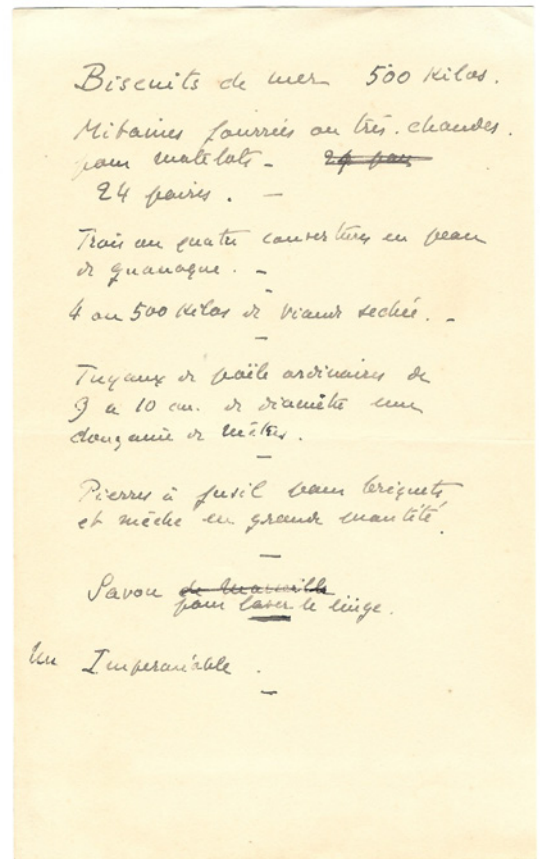 Biscuits de mer 500 Kilos.
Mitaines fourrées ou très chaudes.
pour matelots -
24 paires. -
Trois ou quatre couvertures en peau
de guanaque. -
4 ou 500 Kilos de viande sechée. -
Tuyaux de poële ordinaires de
9 a 10 cm. de diamètre une
douzaine de mètres.
Pierres à fusil pour briquets
et mèche en grande quantité.
Savon de Marseille
pour laver le linge.
Un Imperméable.